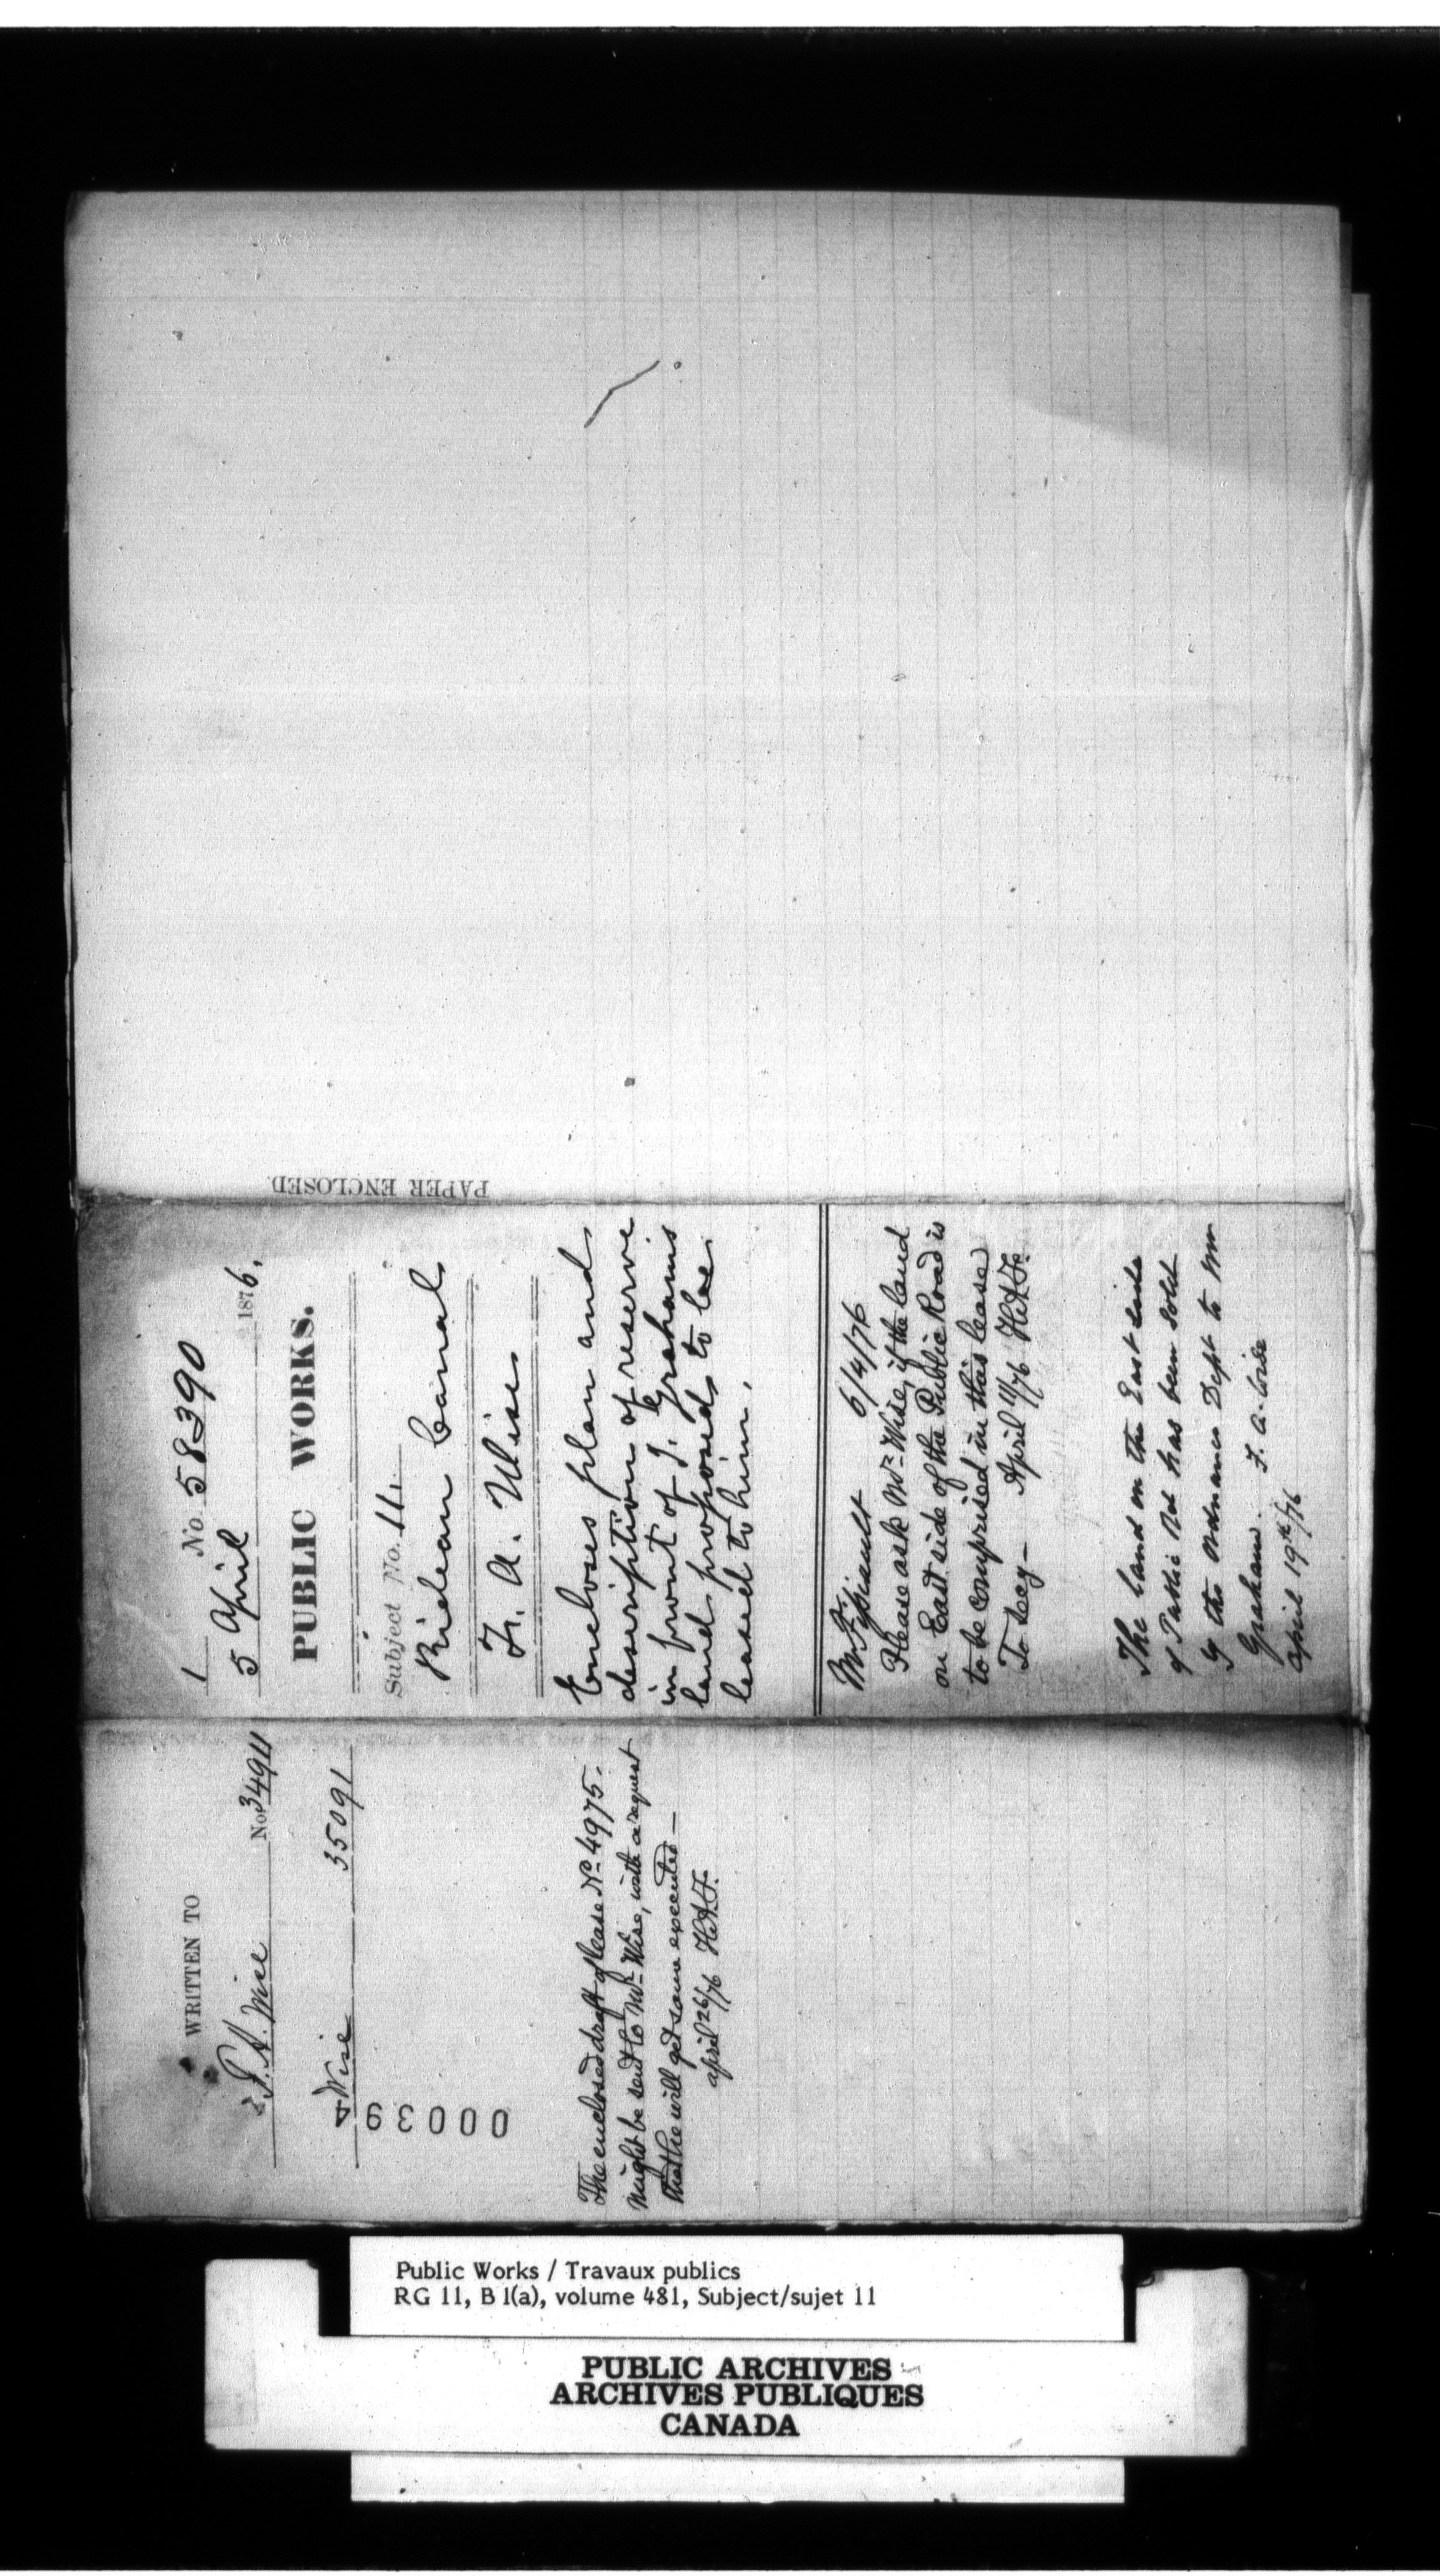 PAPER ENCLOSED
1 No. 58390
5 April 1876,
PUBLIC WORKS.
Subject No. 11.
Rideau Canal
F. A. Wise
Encloses plan and
description of reserve
in front of J. Graham's
land proposed to be
leased to him.
6/4/76
Please ask Mr Wise, if the land
on East side of the Public Road is
to be comprised in this lease
To Secy — April 11/76 H.A.F.
The land on the East side
of Public Rd has been sold
by the Ordnance Dept to Mr
Graham. F. A. Wise
April 19th/76
WRITTEN TO
F. A. Wise No. 34911
Wise 35091
000394
The enclosed draft of lease No. 4975.
might be sent to Mr Wise, with a request
that he will get same executed —
April 26/76 H.A.F.
Public Works / Travaux publics
RG 11, B 1(a), volume 481, Subject/sujet 11
PUBLIC ARCHIVES
ARCHIVES PUBLIQUES
CANADA